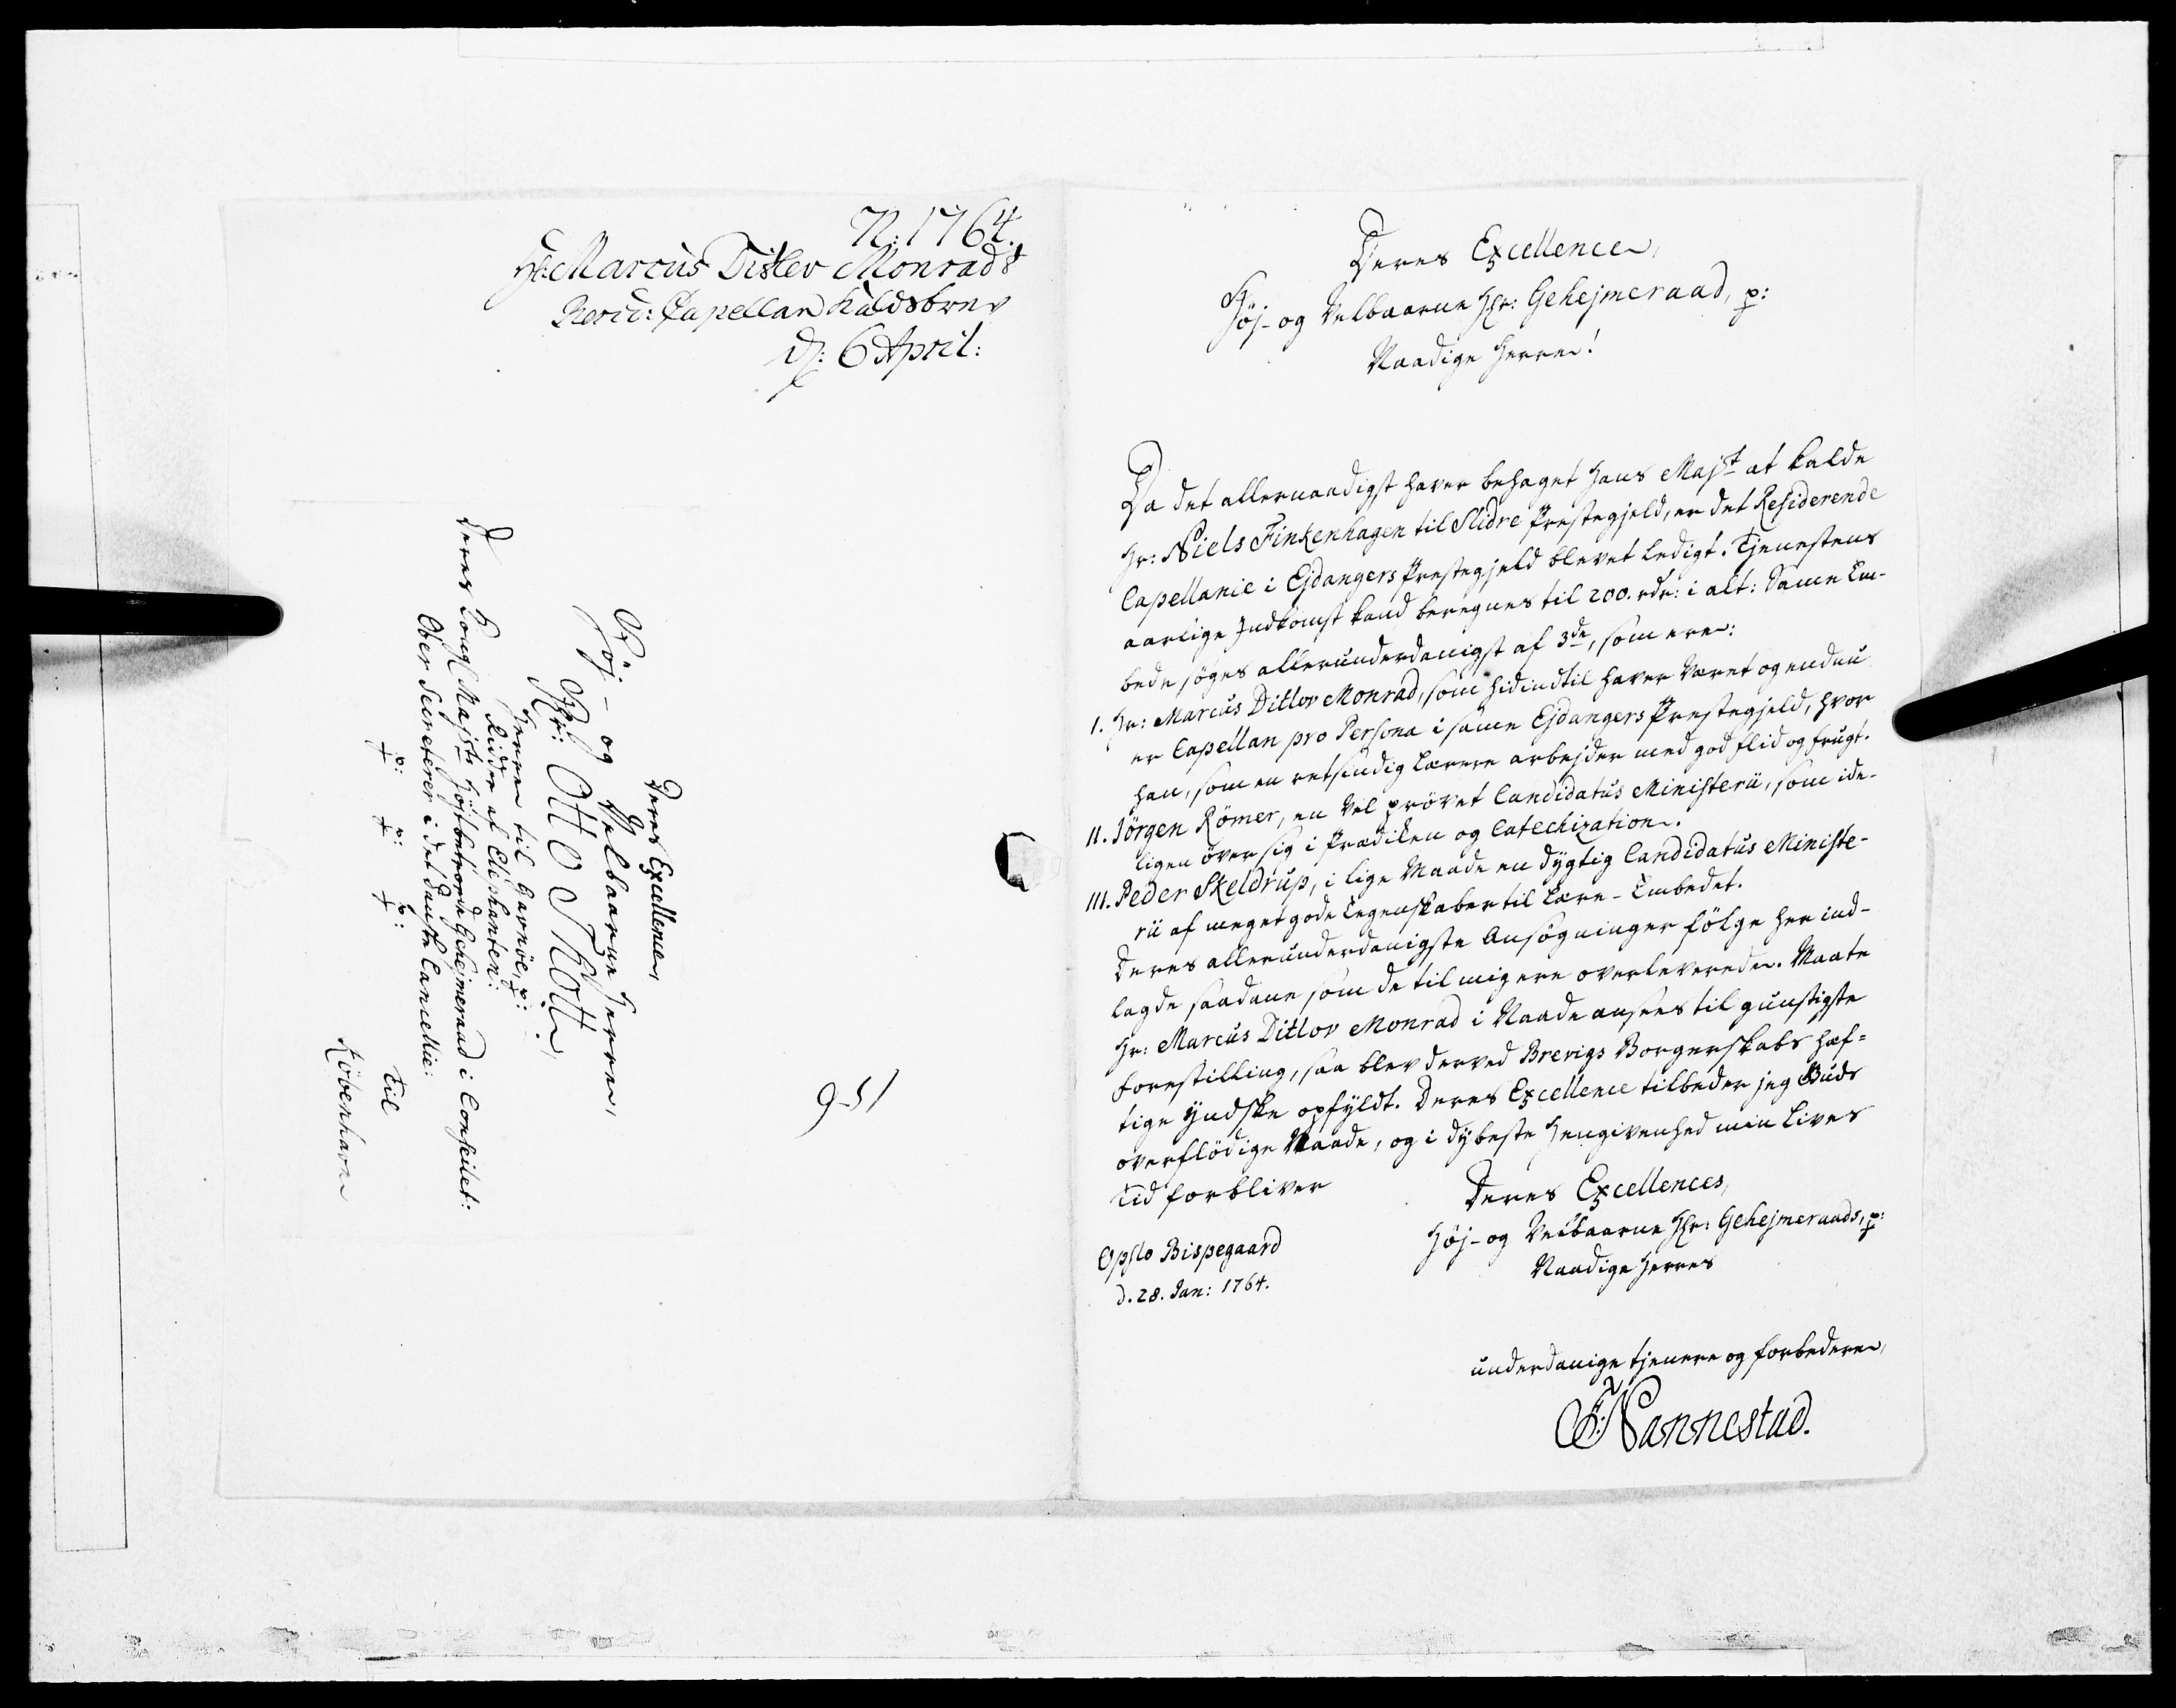 N: 1764.
Hr: Marcus Ditlev Monrads
Resid: Capellan Kaldsbrev
d: 6 April:
Deres Excellence,
Höj- og Velbaarne Herre,
Hr: Otto Thott,
Herre til Gavnöe, p:
Ridder af Elephanten:
Deres Kongl Majsts Höjstbetroede Gehejmeraad i Conseilet:
Ober Secreterer i det danske Cancellie:
p: p: p:
Til
Kiöbenhavn
9-51
Deres Excellence,
Höj- og Velbaarne Hr: Gehejmeraad, p:
Naadige Herre!
Da det allernaadigst haver behaget Hans Majst at kalde
Hr: Niels Finkenhagen til Slidre Prestegjeld, er det Residerende
Capellanie i Ejdangers Prestegjeld blevet ledigt. Tjenestens
aarlige Indkomst kand beregnes til 200. rdr: i alt: Same Em-
bede söges allerunderdanigst af 3de, som ere:
I. Hr: Marcus Ditlov Monrad, som hidindtil haver været og endnu
er Capellan pro Persona i same Ejdangers Prestegjeld, hvor
han, som en retsindig Lærere arbejder med god flid og frugt.
II. Jörgen Römer, en vel prövet Candidatus Ministerii, som ide-
ligen över sig i Prædiken og Catechization.
III. Peder Skeldrup, i lige Maade en dygtig Candidatus Ministe-
rii af meget gode Egenskaber til Lære-Embedet.
Deres allerunderdanigste Ansögninger fölge her ind-
lagde saadane som de til mig ere overleverede. Maatte
Hr: Marcus Ditlov Monrad i Naade ansees til gunstigste
forestilling, saa blev derved Brevigs Borgerskabs hæf-
tige Yndske opfyldt. Deres Excellence tilbeder jeg Guds
overflödige Naade, og i dybeste Hengivenhed min Lives
Tid forbliver
Deres Excellences,
Höj- og Velbaarne Hr: Gehejmeraads, p:
Naadige Herres
Opslo Bispegaard
d. 28. Jan: 1764.
underdanige tjenere og forbedere,
F: Nannestad.